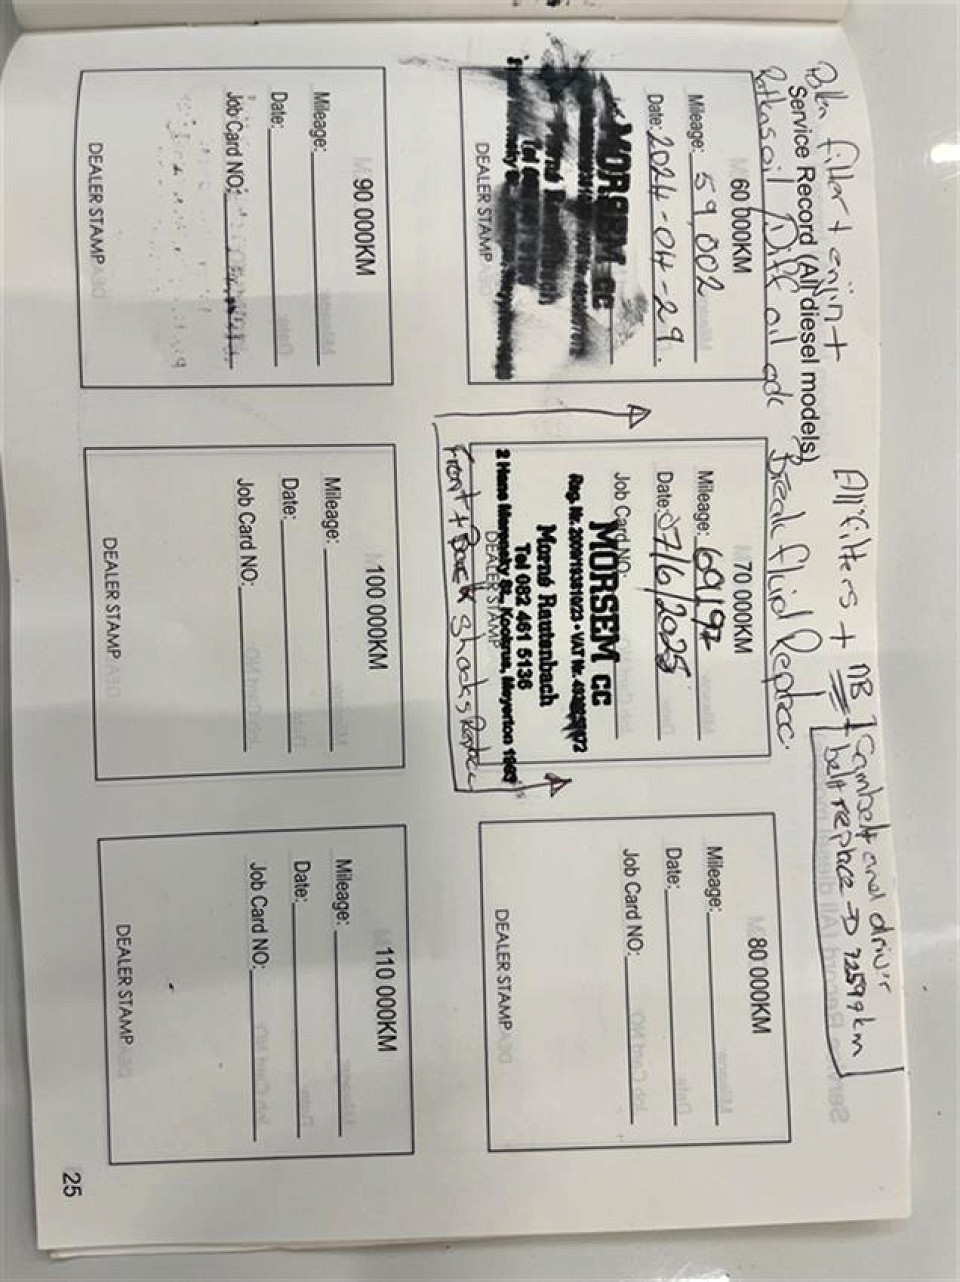 Pollen filter + enjin +
Service Record (All diesel models)
Ratkasoil Diff oil ook
Break fluid Replace.
All filters +
NB
Cambelt and driv'r
belt replace → 72599km
60 000KM
Mileage: 59,002
Date: 2024-04-29.
MORSEM CC
DEALER STAMP
70 000KM
Mileage: 69197
Date: 07/6/2025
Job Card NO:
MORSEM CC
Reg. Nr. 2009/193810/23 • VAT Nr.
Morné Rautenbach
Tel 082 461 5136
DEALER STAMP
Meyerton 1963
Front + Back shocks Replace
80 000KM
Mileage:
Date:
Job Card NO:
DEALER STAMP
90 000KM
Mileage:
Date:
Job Card NO:
DEALER STAMP
100 000KM
Mileage:
Date:
Job Card NO:
DEALER STAMP
110 000KM
Mileage:
Date:
Job Card NO:
DEALER STAMP
25